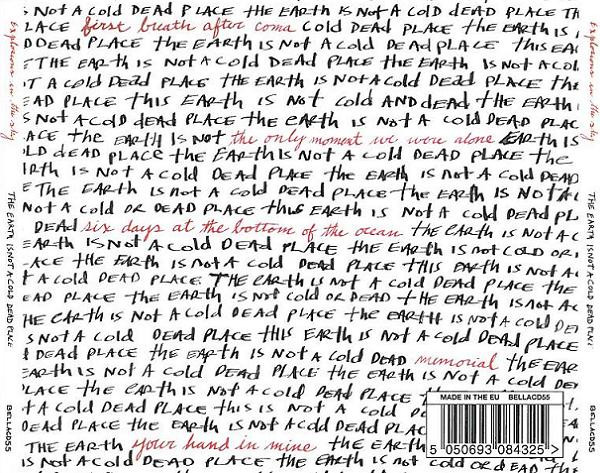 S NOT A COLD DEAD PLACE THE EARTH IS NOT A COLD DEAD PLACE
LACE first breath after coma COLD DEAD PLACE THE EARTH IS
DEAD PLACE THE EARTH IS NOT A COLD DEAD PLACE THIS
THE EARTH IS NOT A COLD DEAD PLACE THE EARTH IS NOT A
A COLD DEAD PLACE THE EARTH IS NOT A COLD DEAD PLACE
DEAD PLACE THIS EARTH IS NOT COLD AND DEAD THE EARTH
NOT A COLD DEAD PLACE THE EARTH IS NOT A COLD DEAD
THE EARTH IS NOT the only moment we were alone EARTH IS
DEAD PLACE THE EARTH IS NOT A COLD DEAD PLACE THE
IS NOT A COLD DEAD PLACE THE EARTH IS NOT A COLD DEAD
THE EARTH IS NOT A COLD DEAD PLACE THE EARTH IS NOT A
NOT A COLD OR DEAD PLACE THIS EARTH IS NOT A COLD DEAD
DEAD six days at the bottom of the ocean THE EARTH IS NOT A
EARTH IS NOT A COLD DEAD PLACE THE EARTH IS NOT COLD OR
THE EARTH IS NOT A COLD DEAD PLACE THIS EARTH IS NOT
A COLD DEAD PLACE THE EARTH IS NOT A COLD DEAD PLACE THE
DEAD PLACE THE EARTH IS NOT COLD OR DEAD THE EARTH IS NOT
THE EARTH IS NOT A COLD DEAD PLACE THE EARTH IS NOT A COLD
NOT A COLD DEAD PLACE THIS EARTH IS NOT A COLD DEAD PLACE
DEAD PLACE THE EARTH IS NOT A COLD DEAD memorial THE
EARTH IS NOT A COLD DEAD PLACE THE EARTH IS NOT A COLD DEAD
PLACE THE EARTH IS NOT A COLD DEAD PLACE
A COLD DEAD PLACE THIS IS NOT A COLD
DEAD PLACE THE EARTH IS NOT A COLD DEAD
THE EARTH your hand in mine THE EARTH
IS NOT A COLD DEAD PLACE THE EARTH IS NOT COLD OR DEAD THE
MADE IN THE EU BELLACD55
5 050693 084325 >
Explosions in the sky THE EARTH IS NOT A COLD DEAD PLACE BELLACD55
Explosions in the sky THE EARTH IS NOT A COLD DEAD PLACE BELLACD55